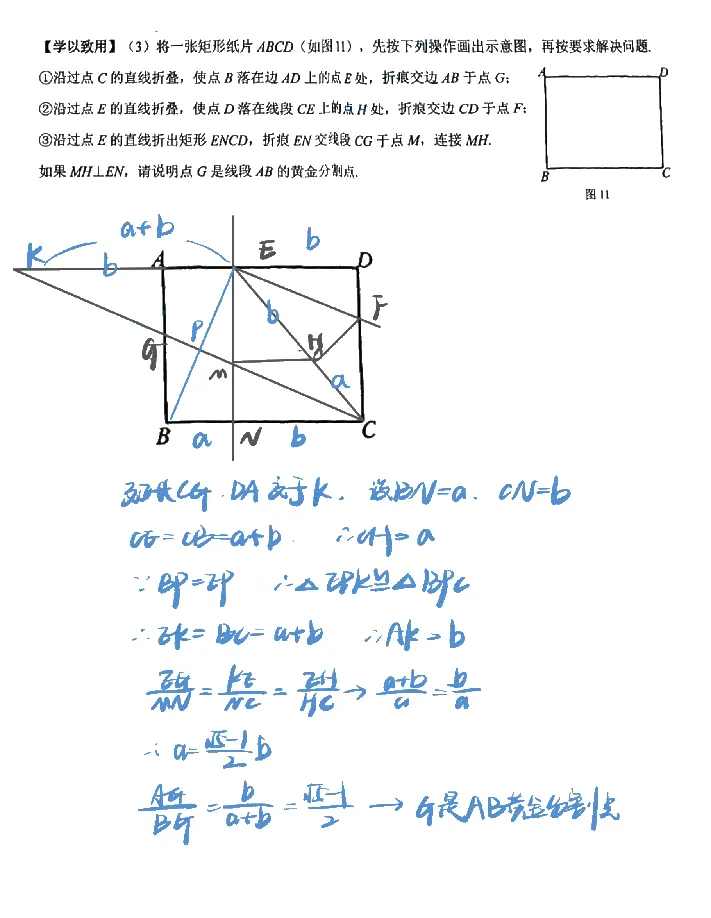 【学以致用】(3) 将一张矩形纸片 ABCD (如图11), 先按下列操作画出示意图, 再按要求解决问题.
①沿过点 C 的直线折叠, 使点 B 落在边 AD 上的点 E 处, 折痕交边 AB 于点 G;
②沿过点 E 的直线折叠, 使点 D 落在线段 CE 上的点 H 处, 折痕交边 CD 于点 F;
③沿过点 E 的直线折出矩形 ENCD, 折痕 EN 交线段 CG 于点 M, 连接 MH.
如果 MH⊥EN, 请说明点 G 是线段 AB 的黄金分割点.
A D
B C
图 11
a+b
K b A E b D
b F
P
G M H
a
B a N b C
延长CG、DA交于K. 设BN=a. CN=b
CE=CB=a+b. ∴CH=a
∵BP=EP ∴△EPK≌△BPC
∴EK=BC=a+b ∴AK=b
KE/NC=EH/HC→
∴a=(√5-1)/2 b
AG/BG=b/(a+b)=(√5-1)/2 → G是AB黄金分割点